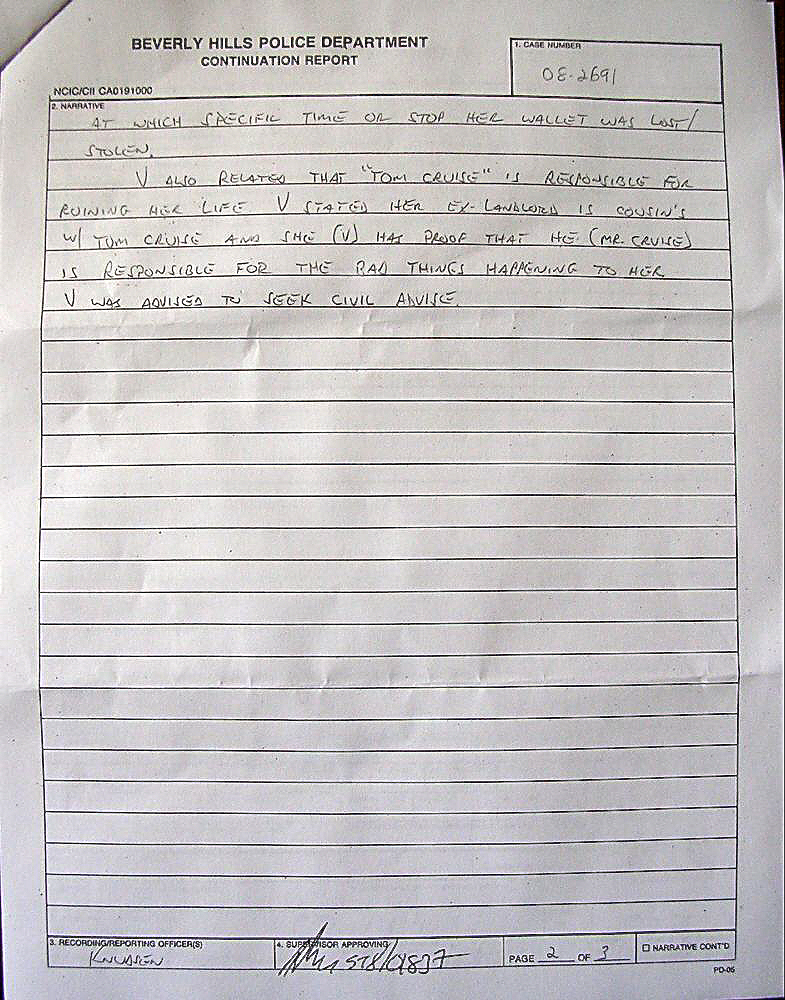 BEVERLY HILLS POLICE DEPARTMENT
CONTINUATION REPORT
1. CASE NUMBER
08-2691
NCIC/CII CA0191000
2. NARRATIVE
AT WHICH SPECIFIC TIME OR STOP HER WALLET WAS LOST/
STOLEN.
V ALSO RELATED THAT "TOM CRUISE" IS RESPONSIBLE FOR
RUINING HER LIFE V STATED HER EX-LANDLORD IS COUSIN'S
W/ TOM CRUISE AND SHE (V) HAS PROOF THAT HE (MR. CRUISE)
IS RESPONSIBLE FOR THE BAD THINGS HAPPENING TO HER
V WAS ADVISED TO SEEK CIVIL ADVISE.
3. RECORDING/REPORTING OFFICER(S)
KNUDSEN
4. SUPERVISOR APPROVING
PAGE 2 OF 3
☐ NARRATIVE CONT'D
PD-05